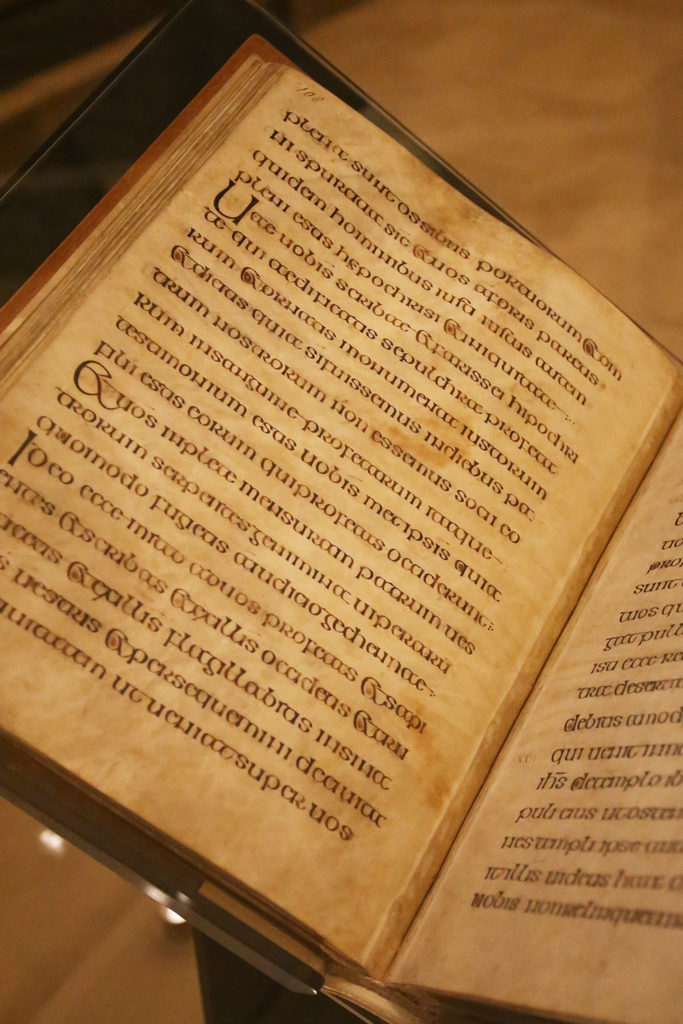 108
plena sunt ossibus mortuorum & om
ni spurcitia sic & uos aforis paretis
quidem hominibus iusti intus autem
pleni estis hipochrisi & iniquitate
Uae uobis scribae & farissei hipochri
tae qui aedificatis sepulchra profeta
rum & ornatis monumenta iustorum
& dicitis quia si fuissemus in diebus pa
trum nostrorum non essemus soci eo
rum in sanguine profetarum itaque
testimonium estis uobis metipsis quia
fili estis eorum qui profetas occiderunt
& uos implete mensuram patrum ues
trorum serpentes gemmina uiperarum
quomodo fugietis a iudicio gechennae
Ideo ecce mitto ad uos profetas & sapi
entes & scribas & ex illis occidetis & cru
& ex illis flagillabitis in sina
uestris & persequemini de ciuita
ciuitatem ut ueniat super uos
sunt
uos qu
pulli
isti ecce re
tra deserta
debitis a modo
qui uenit in no
ihs de templo
puli eius ut osten
nes templi ipse au
it illis uidetis haec
uobis non relinquetur